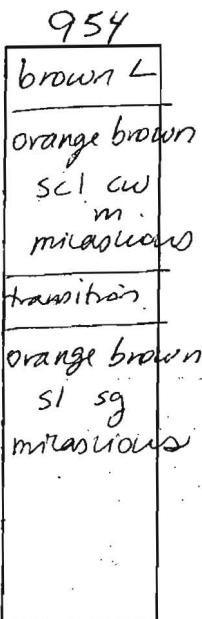 954
brown L
orange brown
scl cw
m.
micaceious
transition
orange brown
sl sg
micascious